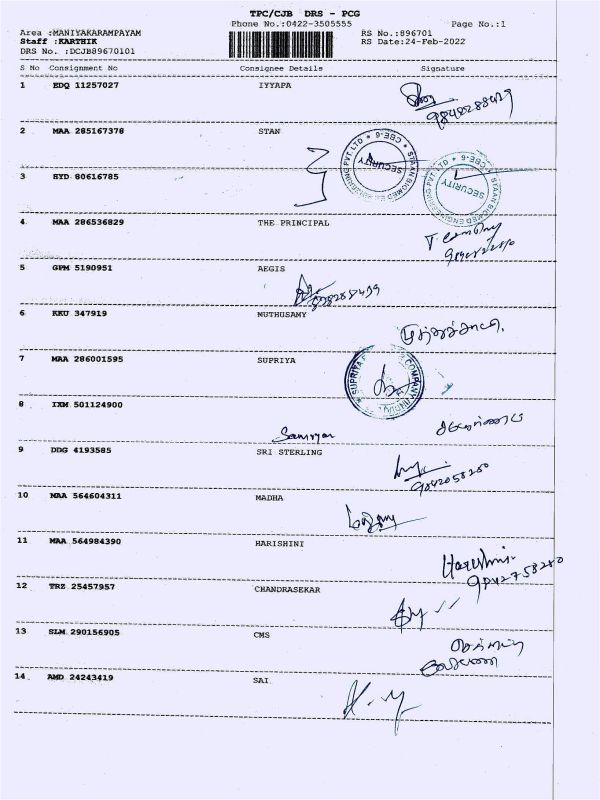 TPC/CJB DRS - PCG
Phone No.:0422-3505555 Page No.:1
Area :MANIYAKARAMPAYAM RS No.:896701
Staff :KARTHIK RS Date:24-Feb-2022
DRS No. :DCJB89670101
S No Consignment No Consignee Details Signature
1 EDQ 11257027 IYYAPA
2 MAA 285167378 STAN
SECURITY
3 HYD 80616785
SECURITY
4 MAA 286536829 THE PRINCIPAL
5 GPM 5190951 AEGIS
6 KKU 347919 MUTHUSAMY
7 MAA 286001595 SUPRIYA
8 IXM 501124900
9 DDG 4193585 SRI STERLING
9842058280
10 MAA 564604311 MADHA
11 MAA 564984390 HARISHINI
Hareshni
9842758280
12 TRZ 25457957 CHANDRASEKAR
13 SLM 290156905 CMS
14 AMD 24243419 SAI